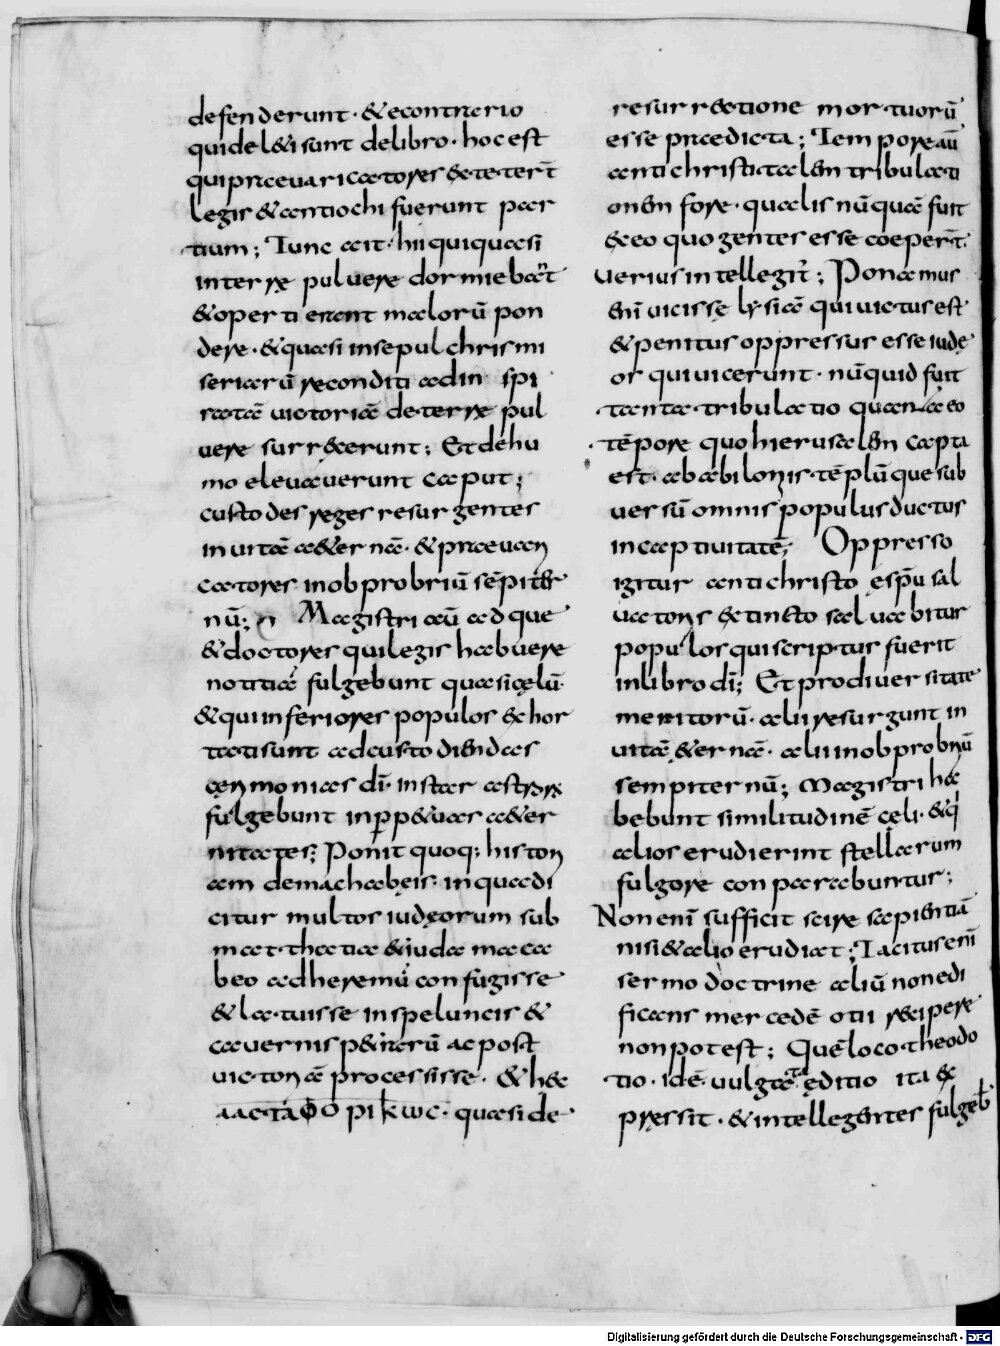 defenderunt · & econtrario
qui del&i sunt de libro · hoc est
qui praeuaricatores & te tert̄
legis & antiochi fuerunt par
tium; Tunc ait · hii qui quasi
in terrę puluere dormiebant
& operti erant malorū pon
dere · & quasi in sepulchris mi
seriarū reconditi ad in spi
ratā uictoriā de terrę pul
uere surrexerunt; Et de hu
mo eleuauerunt caput;
custodes reges resurgentes
in uitā a&ernā · & praeuari
catores in obprobriū sēpiter
nū; Magistri aū adque
& doctores qui legis habuere
notitiā fulgebunt quasi cęlū ·
& qui inferiores populos exhor
tati sunt ad custodiendas
cęrimonias dī · instar astrorū
fulgebunt in perp&uas a&er
nitates; Ponit quoq; histori
am de machabeis · in qua di
citur multos iudęorum sub
matthathia & iuda macca
beo ad heremū confugisse
& latuisse in speluncis &
cauernis p&rarū ac post
uictoriā processisse · & hęc
ΛΑCΤΑΦΟΡΙΚΩC · quasi de
resurrectione mortuorū
esse praedicta; Tempore aū
antichristi talem tribulati
onem fore · qualis nūquā fuit
ex eo quo gentes esse coepert̄ ·
uerius intellegit̄; Ponamus
enī uicisse lysiā qui uictus est
& penitus oppressus esse iudę
os qui uicerunt · nūquid fuit
tanta tribulatio quanta eo
tēpore quo hierusalem capta
est · a babilonis · tēplū que sub
uersū omnis populus ductus
in captiuitatē; Oppresso
igitur antichristo ęspū sal
uatoris extincto saluabitur
populus qui scriptus fuerit
in libro dī; Et pro diuersitate
meritorū · alii resurgunt in
uitā &ernā · alii in obprobriū
sempiternū; Magistri ha
bebunt similitudinē cęli · & q̄
alios erudierint stellarum
fulgore conparabuntur;
Non enī sufficit scire sapientiā
nisi & alios erudiat; Tacitus enī
sermo doctrine aliū non edi
ficans mercedē otii recipere
non potest; Quē loco theodo
tio · idē uulgata ęditio ita ex
pręssit · & intellegentes fulgeb̄
Digitalisierung gefördert durch die Deutsche Forschungsgemeinschaft - DFG